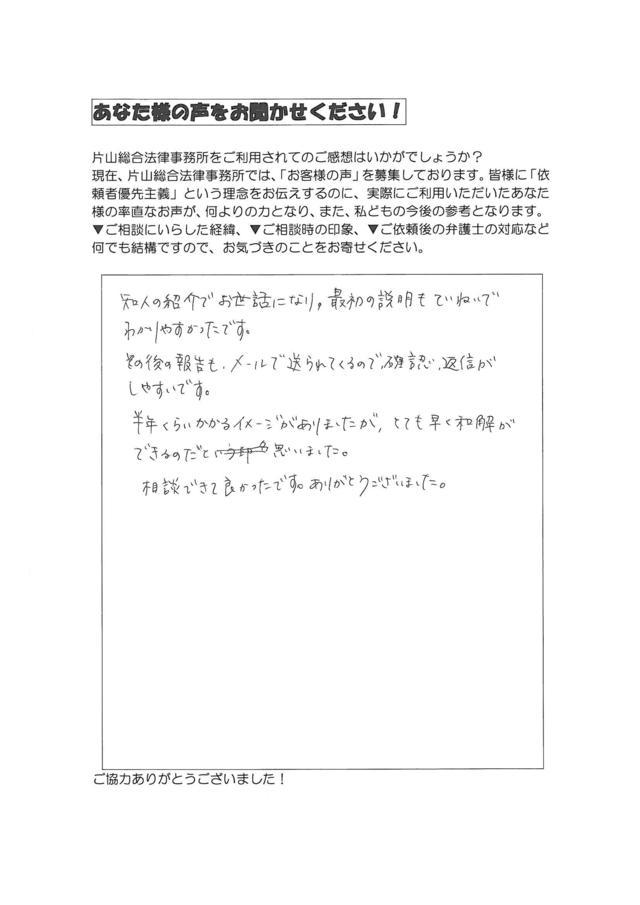 あなた様の声をお聞かせください！
片山総合法律事務所をご利用されてのご感想はいかがでしょうか？
現在、片山総合法律事務所では、「お客様の声」を募集しております。皆様に「依
頼者優先主義」という理念をお伝えするのに、実際にご利用いただいたあなた
様の率直なお声が、何よりの力となり、また、私どもの今後の参考となります。
▼ご相談にいらした経緯、▼ご相談時の印象、▼ご依頼後の弁護士の対応など
何でも結構ですので、お気づきのことをお寄せください。
知人の紹介でお世話になり，最初の説明もていねいで
わかりやすかったです。
その後の報告も、メールで送られてくるので、確認、返信が
しやすいです。
半年くらいかかるイメージがありましたが，とても早く和解が
できるのだと思いました。
相談できて良かったです。ありがとうございました。
ご協力ありがとうございました！